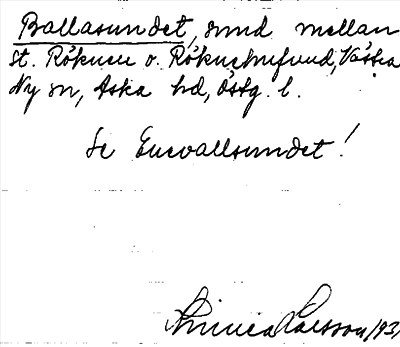 Ballasundet, sund mellan
St. Röknen o. Röknehufvud, Västra
Ny sn, Aska hd, Östg. l.
Se Enevallsundet!
Linnea Larsson 193